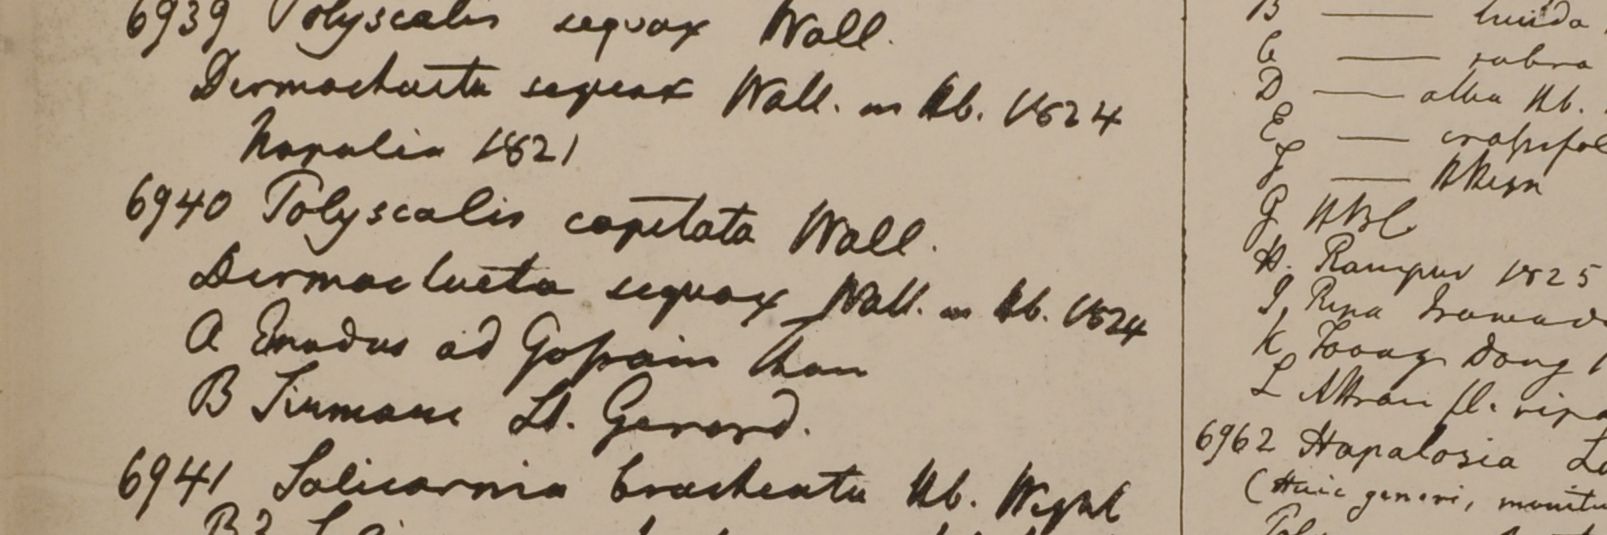 6939 Polyscalis sequax Wall.
Dermochaeta sequax Wall. in Hb. 1824
Napalia 1821
6940 Polyscalis capitata Wall.
Dermochaeta sequax Wall. in Hb. 1824
A Emodus ad Gossain Than
B Sirmore Lt. Gerard.
6941 Salicornia bracheata Hb. Wight
B?
B — lucida
C — rubra
D — alba Hb.
E — crassifol
F — HHeyn
G HBC
H. Rampur 1825
I, Ripa Irawadi
K, Toong Dong
L Attran fl. ripa
6962 Hapalosia
(Huic generi, monitu